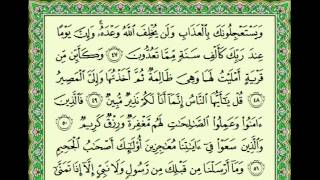 وَيَسْتَعْجِلُونَكَ بِالْعَذَابِ وَلَن يُخْلِفَ اللَّهُ وَعْدَهُ وَإِنَّ يَوْمًا
عِندَ رَبِّكَ كَأَلْفِ سَنَةٍ مِّمَّا تَعُدُّونَ ٤٧ وَكَأَيِّن مِّن
قَرْيَةٍ أَمْلَيْتُ لَهَا وَهِيَ ظَالِمَةٌ ثُمَّ أَخَذْتُهَا وَإِلَيَّ الْمَصِيرُ
٤٨ قُلْ يَا أَيُّهَا النَّاسُ إِنَّمَا أَنَا لَكُمْ نَذِيرٌ مُّبِينٌ ٤٩ فَالَّذِينَ
آمَنُوا وَعَمِلُوا الصَّالِحَاتِ لَهُم مَّغْفِرَةٌ وَرِزْقٌ كَرِيمٌ ٥٠
وَالَّذِينَ سَعَوْا فِي آيَاتِنَا مُعَاجِزِينَ أُولَٰئِكَ أَصْحَابُ الْجَحِيمِ
٥١ وَمَا أَرْسَلْنَا مِن قَبْلِكَ مِن رَّسُولٍ وَلَا نَبِيٍّ إِلَّا إِذَا تَمَنَّىٰ